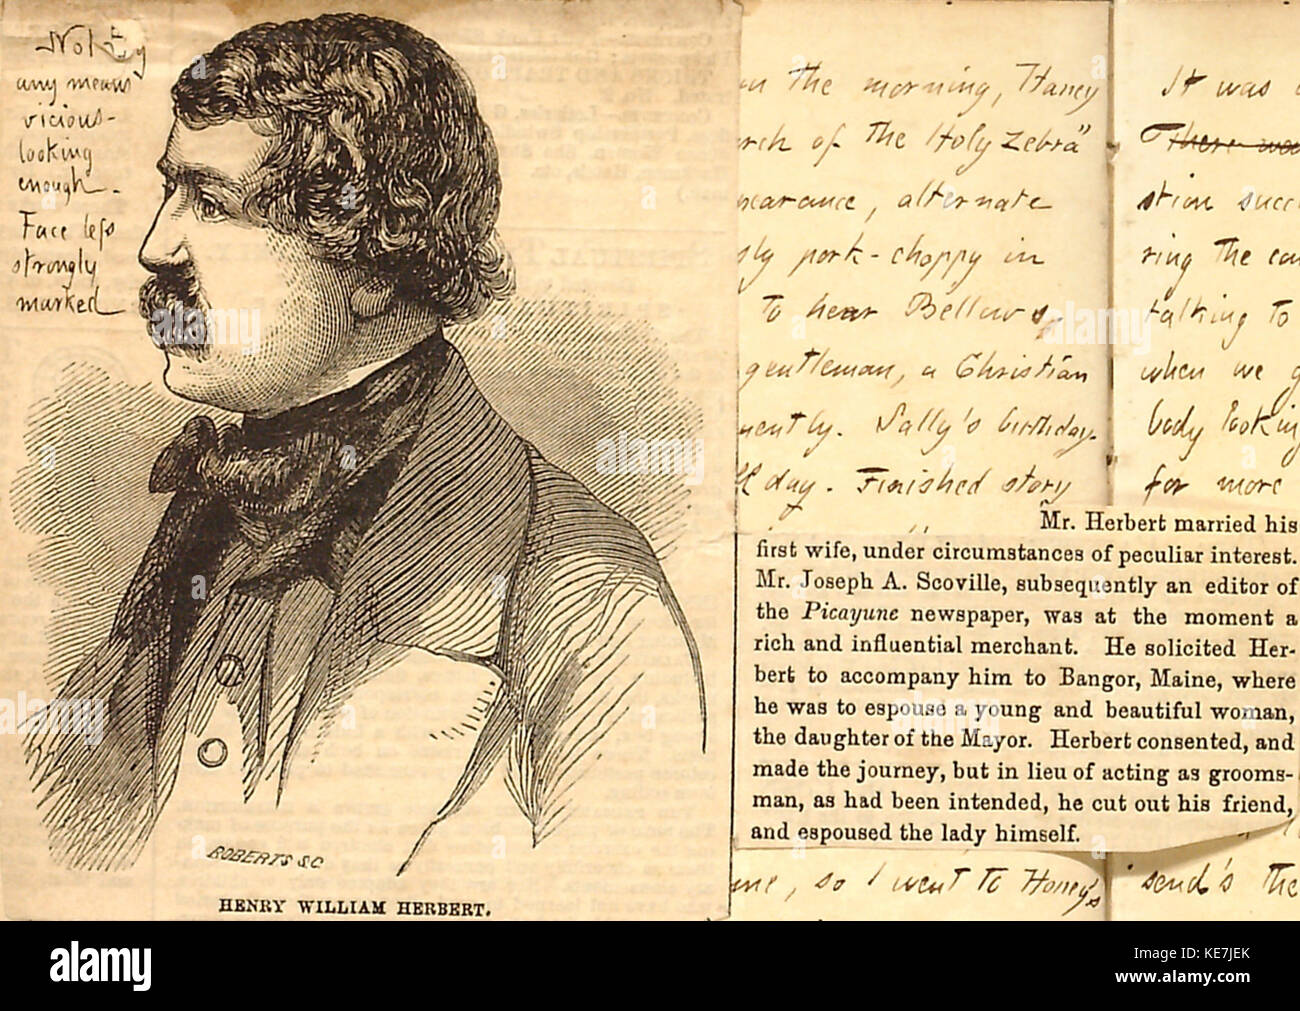 Not By
any means
vicious-
looking
enough.
Face less
strongly
marked
ROBERTS SC
HENRY WILLIAM HERBERT.
in the morning, Haney
rch of the Holy Zebra"
pearance, alternate
sly pork-choppy in
to hear Bellows,
gentleman, a Christian
uently. Sally's birthday.
ll day. Finished story
Mr. Herbert married his
first wife, under circumstances of peculiar interest.
Mr. Joseph A. Scoville, subsequently an editor of
the Picayune newspaper, was at the moment a
rich and influential merchant. He solicited Her-
bert to accompany him to Bangor, Maine, where
he was to espouse a young and beautiful woman,
the daughter of the Mayor. Herbert consented, and
made the journey, but in lieu of acting as grooms-
man, as had been intended, he cut out his friend,
and espoused the lady himself.
me, so I went to Honey's
It was
There
stion succ
ring the
talking to
when we g
body lookin
for more
send's the
alamy
Image ID: KE7JEK
www.alamy.com